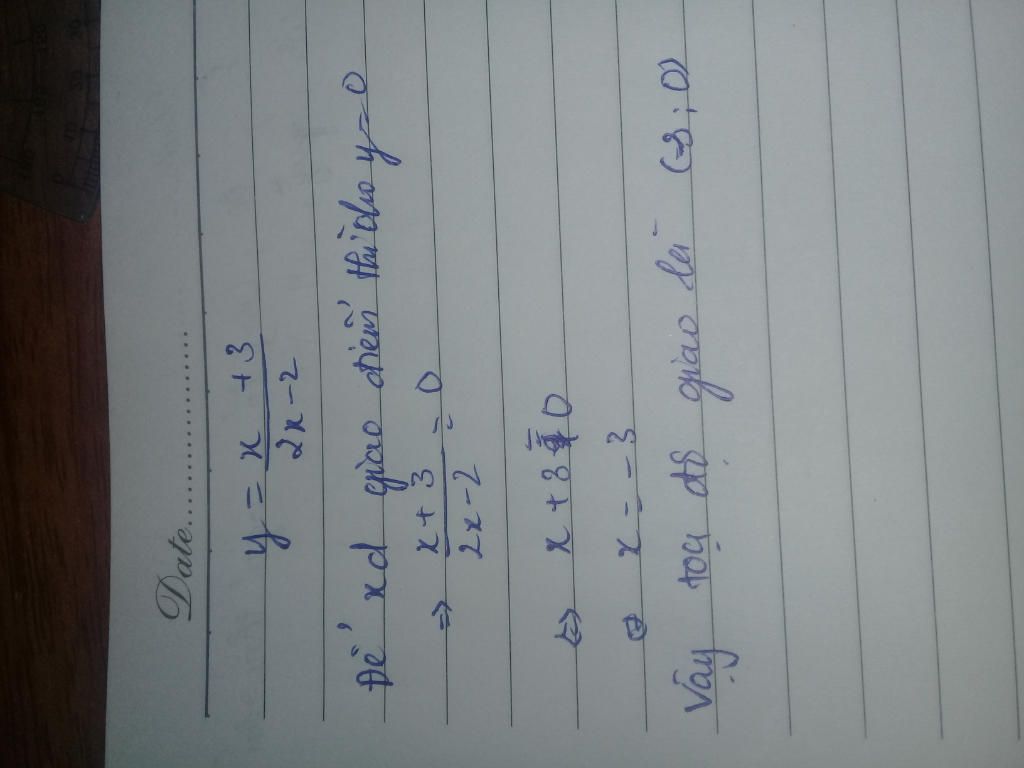 Date
y = x + 3 / 2x - 2
Để xd giao điểm thì cho y = 0
=> x + 3 / 2x - 2 = 0
<=> x + 3 = 0
<=> x = -3
Vậy toạ độ giao là (-3 ; 0)